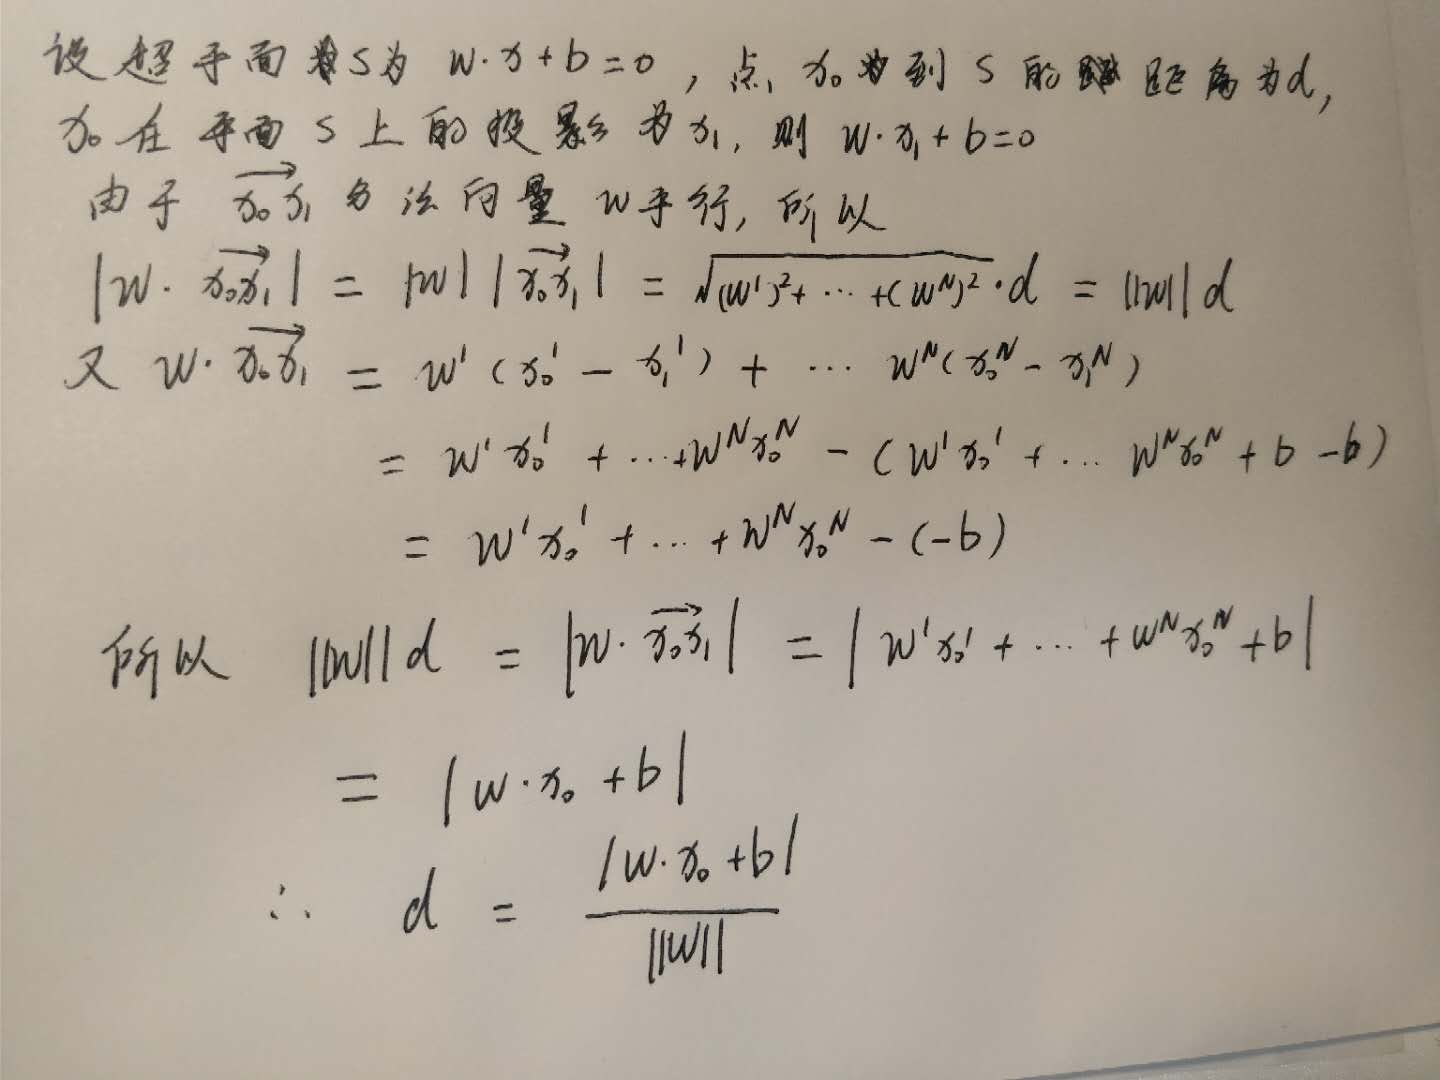 设超平面S为 w·x+b=0，点x₀到S的距离为d，
x₀在平面S上的投影为x₁，则 w·x₁+b=0
由于 $\overrightarrow{x_0x_1}$ 与法向量w平行，所以
|w·$\overrightarrow{x_0x_1}$| = |w| |$\overrightarrow{x_0x_1}$| = $\sqrt{(w^1)^2+\cdots+(w^N)^2}$·d = ||w||d
又 w·$\overrightarrow{x_0x_1}$ = $w^1(x_0^1-x_1^1)+\cdots w^N(x_0^N-x_1^N)$
= $w^1x_0^1+\cdots+w^Nx_0^N-(w^1x_0^1+\cdots w^Nx_0^N+b-b)$
= $w^1x_0^1+\cdots+w^Nx_0^N-(-b)$
所以 ||w||d = |w·$\overrightarrow{x_0x_1}$| = |$w^1x_0^1+\cdots+w^Nx_0^N+b$|
= |w·x₀+b|
∴ d = $\frac{|w·x_0+b|}{||w||}$